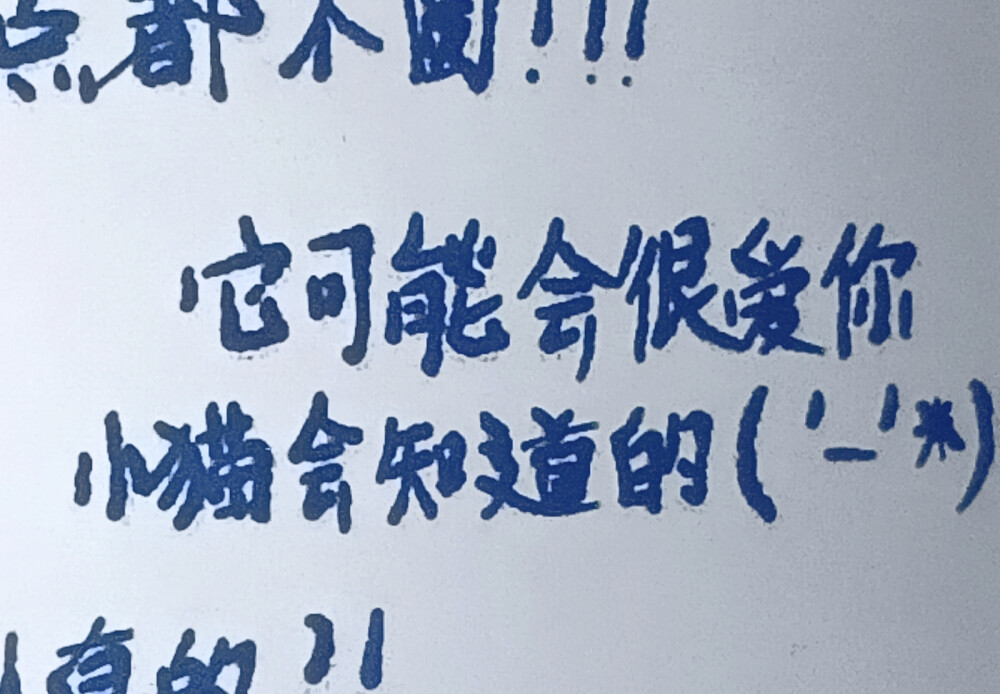 点都不圆!!!
它可能会很爱你
小猫会知道的('–'*)
真的